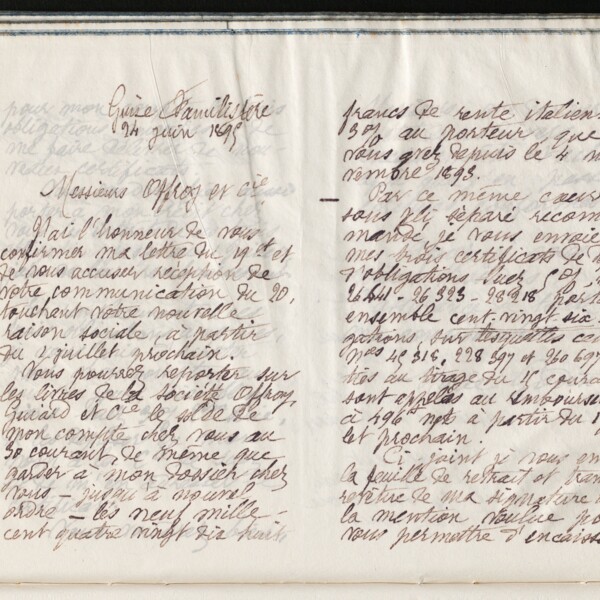 Guise Familistère
24 juin 1895
Messieurs Offroy et Cie
J'ai l'honneur de vous
confirmer ma lettre du 19 ct et
de vous accuser réception de
votre communication du 20,
touchant votre nouvelle
raison sociale, à partir
du 1 juillet prochain.
Vous pourrez reporter sur
les livres de la société Offroy,
Guiard et Cie le solde de
mon compte chez vous au
30 courant de même que
garder à mon dossier chez
vous - jusqu'à nouvel
ordre - les neuf mille
cent quatre vingt dix huit
francs de rente italien
au porteur que
vous avez depuis le 4 no
vembre 1893.
Par ce même courr
sous pli séparé recom
mandé je vous envoie
mes trois certificats de
d'obligations Suez
26323 - 28918 port
ensemble cent vingt six
gations, sur lesquelles
Nos 228597 et
ties au tirage du 15 coura
sont appelés au rembourse
à à partir du 1
let prochain.
Ci joint je vous en
la feuille de retrait et tran
revêtue de ma signature
la mention voulue po
vous permettre d'encaiss